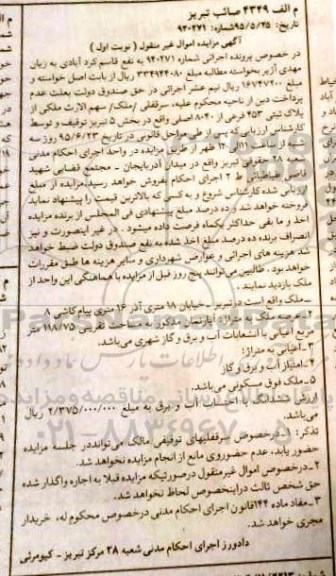 م الف ۴۳۴۹ صائب تبریز
تاریخ: ۹۵/۵/۲۵ شماره: ۹۴۰۲۷۱
آگهی مزایده اموال غیر منقول ( نوبت اول )
در خصوص پرونده اجرائی شماره ۹۴۰۲۷۱ به نفع قاسم کرد آبادی به زیان
مهدی آژیر بخواسته مطالبه مبلغ ۳۳۴۹۴۴۰۸۰ ریال از بابت اصل خواسته و
مبلغ ۱۶۷۴۷۲۰۰ ریال نیم عشر اجرائی در حق صندوق دولت بعلت عدم
پرداخت دین از ناحیه محکوم علیه، سرقفلی /ملک/ سهم الارث ملکی از
پلاک ثبتی ۴۵۳ فرعی از ۸۰۴۰ اصلی واقع در بخش ۵ تبریز توقیف و توسط
کارشناس ارزیابی که پس از طی مراحل قانونی در تاریخ ۹۵/۶/۲۳ روز سه
شنبه از ساعت ۱۱ الی ۱۲ ظهر از طریق مزایده در واحد اجرای احکام مدنی
شعبه ۲۸ حقوقی تبریز واقع در میدان آذربایجان - مجتمع قضایی شهید
قاضی طباطبائی ط ۲ اجرای احکام بفروش خواهد رسید. مزایده از مبلغ
ارزیابی شده کارشناس شروع و به کسی که بالاترین قیمت را پیشنهاد نماید
فروخته خواهد شد و ده درصد مبلغ پیشنهادی فی المجلس از برنده مزایده
اخذ و ما بقی حداکثر یکماه فرصت داده میشود . در غیر اینصورت و نیز
انصراف برنده ده درصد مبلغ اخذ شده به نفع صندوق دولت ضبط خواهد
شد هزینه های اجرائی و عوارض شهرداری و سایر هزینه ها طبق مقررات
خواهد بود. طالبین می‌توانند پنج روز قبل از مزایده با هماهنگی این واحد از
ملک بازدید نمایند .
۱-ملک واقع است در:تبریز- خیابان ۱۸ متری آذر ۱۶ متری پیام کاشی ۸
۲-عرصه ملک به متراژ: آپارتمان مذکور به مساحت تقریبی ۱۱۸/۷۵ متر
مربع اعیانی با انشعابات آب و برق و گاز شهری می‌باشد.
۳-اعیانی به متراژ:
۴-امتیاز آب و برق و گاز:
۵-ملک فوق مسکونی می‌باشد.
ارزش ششدانگ با احتساب آب و برق به مبلغ ۲/۳۷۵/۰۰۰/۰۰۰ ریال
می‌باشد.
تذکر: ۱-درخصوص سرقفلیهای توقیفی مالک می‌توانددر جلسه مزایده
حضور یابد، عدم حضور وی مانع از انجام مزایده نخواهد شد.
۲-درخصوص اموال غیر منقول درصورتیکه مزایده قبلا به اجاره واگذار شده
حق شخص ثالث در این خصوص لحاظ نخواهد شد.
۳-مفاد ماده ۱۴۴ قانون اجرای احکام مدنی در خصوص محکوم له، خریدار
مجری خواهد شد.
دادورز اجرای احکام مدنی شعبه ۲۸ مرکز تبریز - کیومرثی
۰۲۱-۸۸۳۴۹۶۷۰-۵